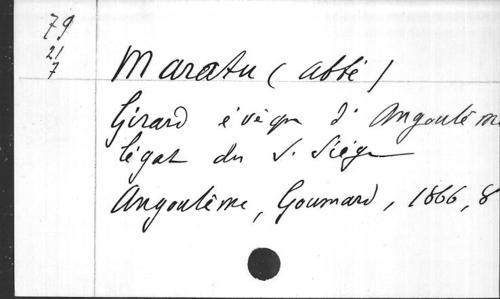 79
21
7
Maratu (abbé)
Girard évêque d'Angoulême
légat du S. Siége
Angoulême, Goumard, 1866, 8